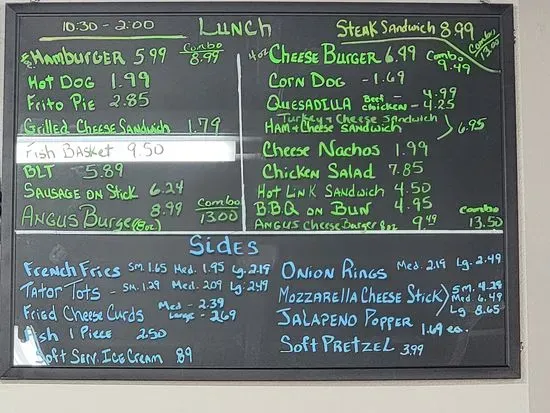 10:30 - 2:00
Lunch
Steak Sandwich 8.99
Combo 13.00
Hamburger 5.99 Combo 8.99
Hot Dog 1.99
Frito Pie 2.85
Grilled Cheese Sandwich 1.79
Fish Basket 9.50
BLT - 5.89
Sausage on Stick 6.24
Angus Burger (8oz) 8.99 Combo 13.00
4oz Cheese Burger 6.99 Combo 9.49
Corn Dog - 1.69
Quesadilla Beef - 4.99
Chicken - 4.25
Turkey & Cheese Sandwich
Ham & Cheese Sandwich 6.95
Cheese Nachos 1.99
Chicken Salad 7.85
Hot Link Sandwich 4.50
B.B.Q on Bun 4.95
Angus Cheese Burger 8oz 9.49 Combo 13.50
Sides
French Fries Sm. 1.65 Med. 1.95 Lg. 2.19
Tator Tots - Sm. 1.29 Med. 2.09 Lg. 2.49
Fried Cheese Curds Med - 2.39
Large - 2.69
Fish 1 Piece 2.50
Soft Serv. Ice Cream .89
Onion Rings Med. 2.19 Lg. 2.49
Mozzarella Cheese Stick Sm. 4.29
Med. 6.49
Lg 8.65
Jalapeno Popper 1.69 ea.
Soft Pretzel 3.99